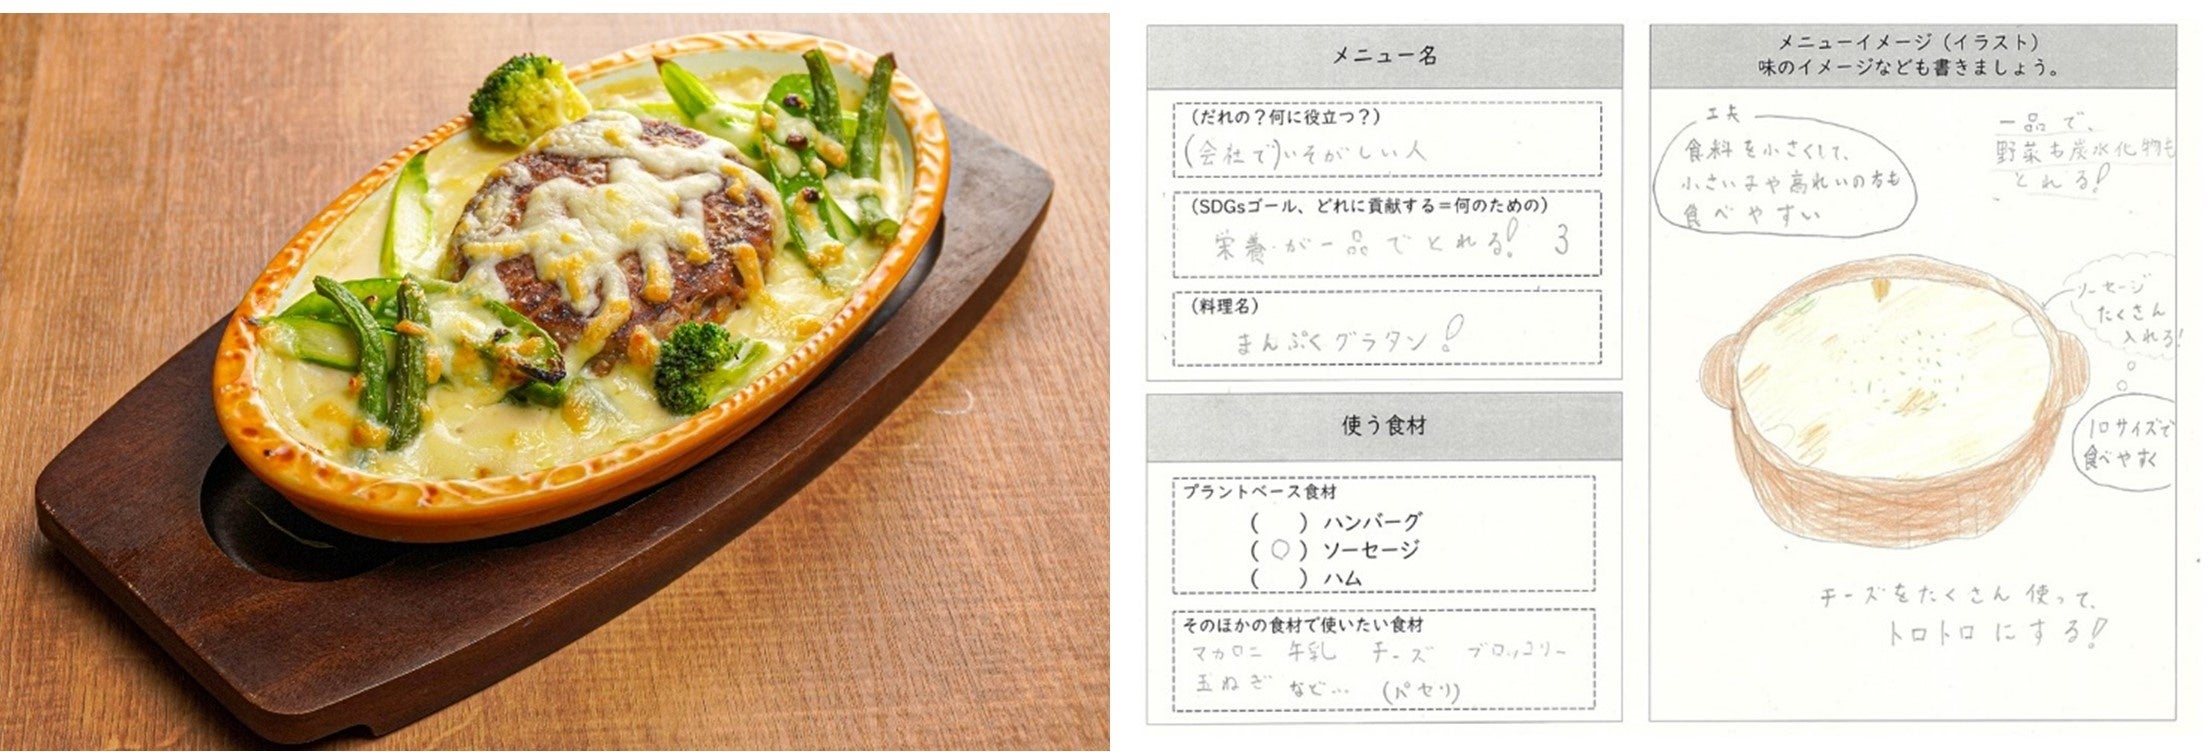 メニュー名
(だれの？何に役立つ？)
(会社で)いそがしい人
(SDGsゴール、どれに貢献する＝何のための)
栄養が一品でとれる! 3
(料理名)
まんぷくグラタン!
使う食材
プラントベース食材
(　) ハンバーグ
(○) ソーセージ
(　) ハム
そのほかの食材で使いたい食材
マカロニ 牛乳 チーズ ブロッコリー
玉ねぎ など… (パセリ)
メニューイメージ（イラスト）
味のイメージなども書きましょう。
工夫
食料を小さくして、
小さい子や高れいの方も
食べやすい
一品で、
野菜も炭水化物も
とれる!
ソーセージ
たくさん
入れる!
1口サイズで
食べやすく
チーズをたくさん使って、
トロトロにする!